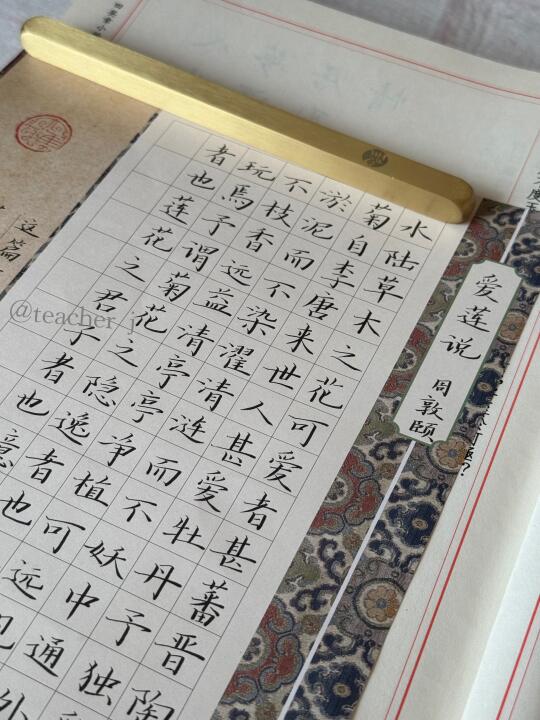 爱莲说
周敦颐
水陆草木之花可爱者甚蕃晋陶
菊自李唐来世人甚爱牡丹予独
淤泥而不染濯清涟而不妖中通外
不枝香远益清亭亭净植可远
玩焉予谓菊花之隐逸者也
者也莲花之君子者也
这篇
@teacher_j